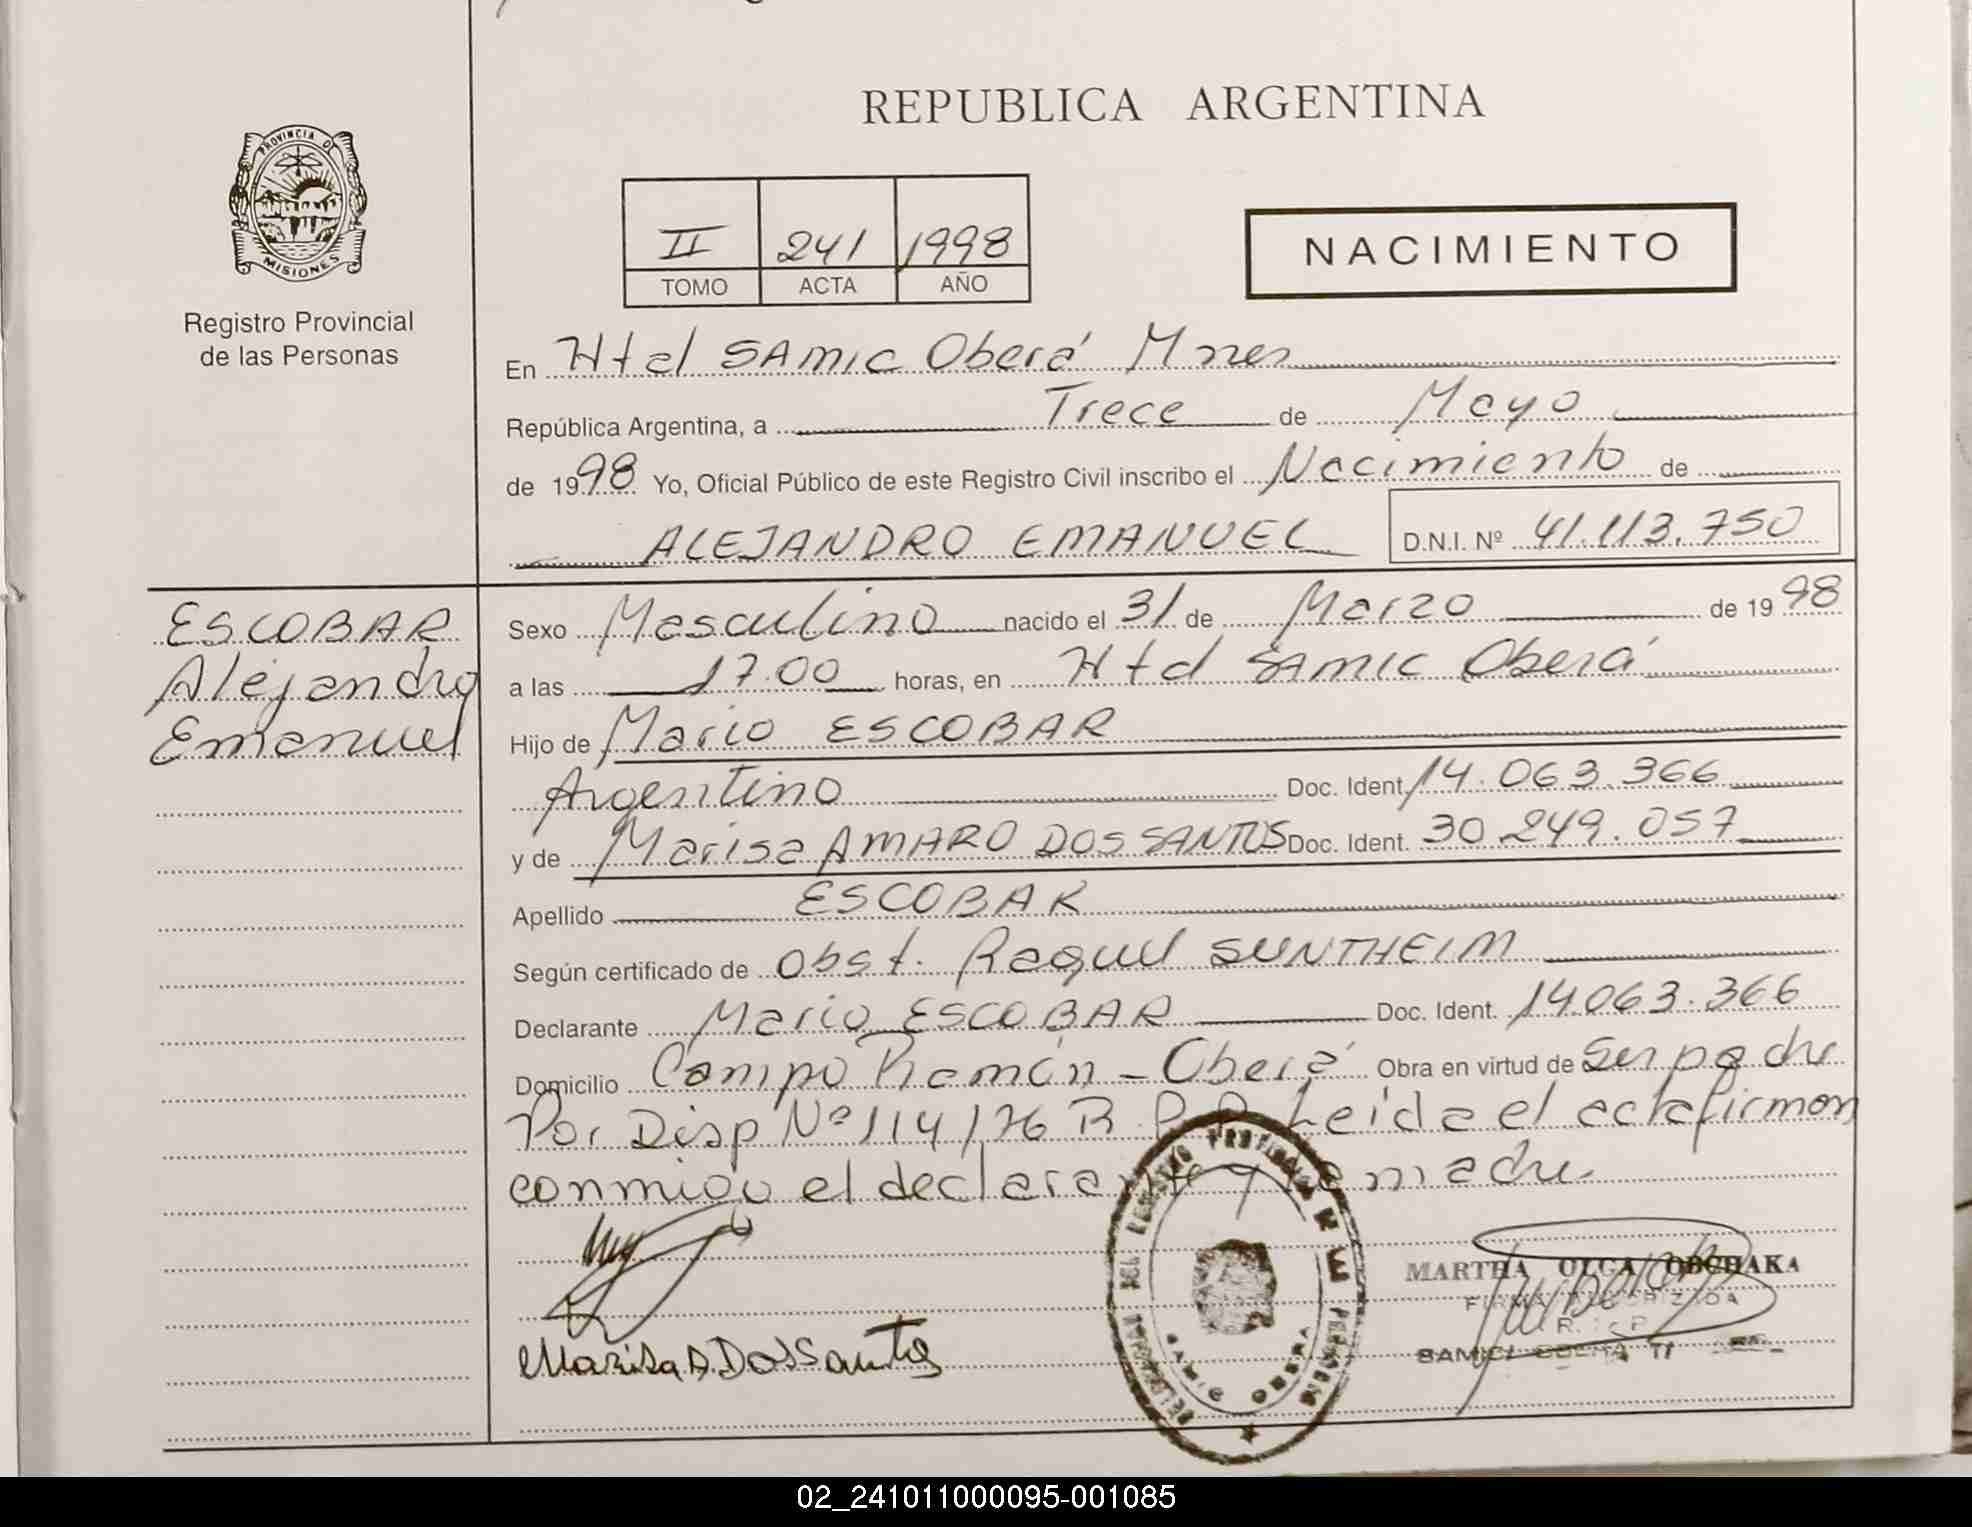 REPUBLICA ARGENTINA
PROVINCIA DE
MISIONES
Registro Provincial
de las Personas
II 241 1998
TOMO ACTA AÑO
NACIMIENTO
En Htal SAMIC Oberá Mnes
República Argentina, a Trece de Mayo
de 1998 Yo, Oficial Público de este Registro Civil inscribo el Nacimiento de
ALEJANDRO EMANUEL D.N.I. Nº 41.113.750
ESCOBAR
Alejandro
Emanuel
Sexo Masculino nacido el 31 de Marzo de 1998
a las 17.00 horas, en Htal SAMIC Oberá
Hijo de Mario ESCOBAR
Argentino Doc. Ident. 14.063.366
y de Marisa AMARO DOS SANTOS Doc. Ident. 30.249.057
Apellido ESCOBAR
Según certificado de Obst. Raquel SUNTHEIM
Declarante Mario ESCOBAR Doc. Ident. 14.063.366
Domicilio Campo Ramón - Oberá Obra en virtud de Ser padre
Por Disp Nº 114/76 R.P.P. Leida el acta firman
conmigo el declarante y la madre
Marisa A. Dos Santos
MARTHA OLGA OBCHAKA
FIRMA AUTORIZADA
SAMIC OBERA
02_241011000095-001085